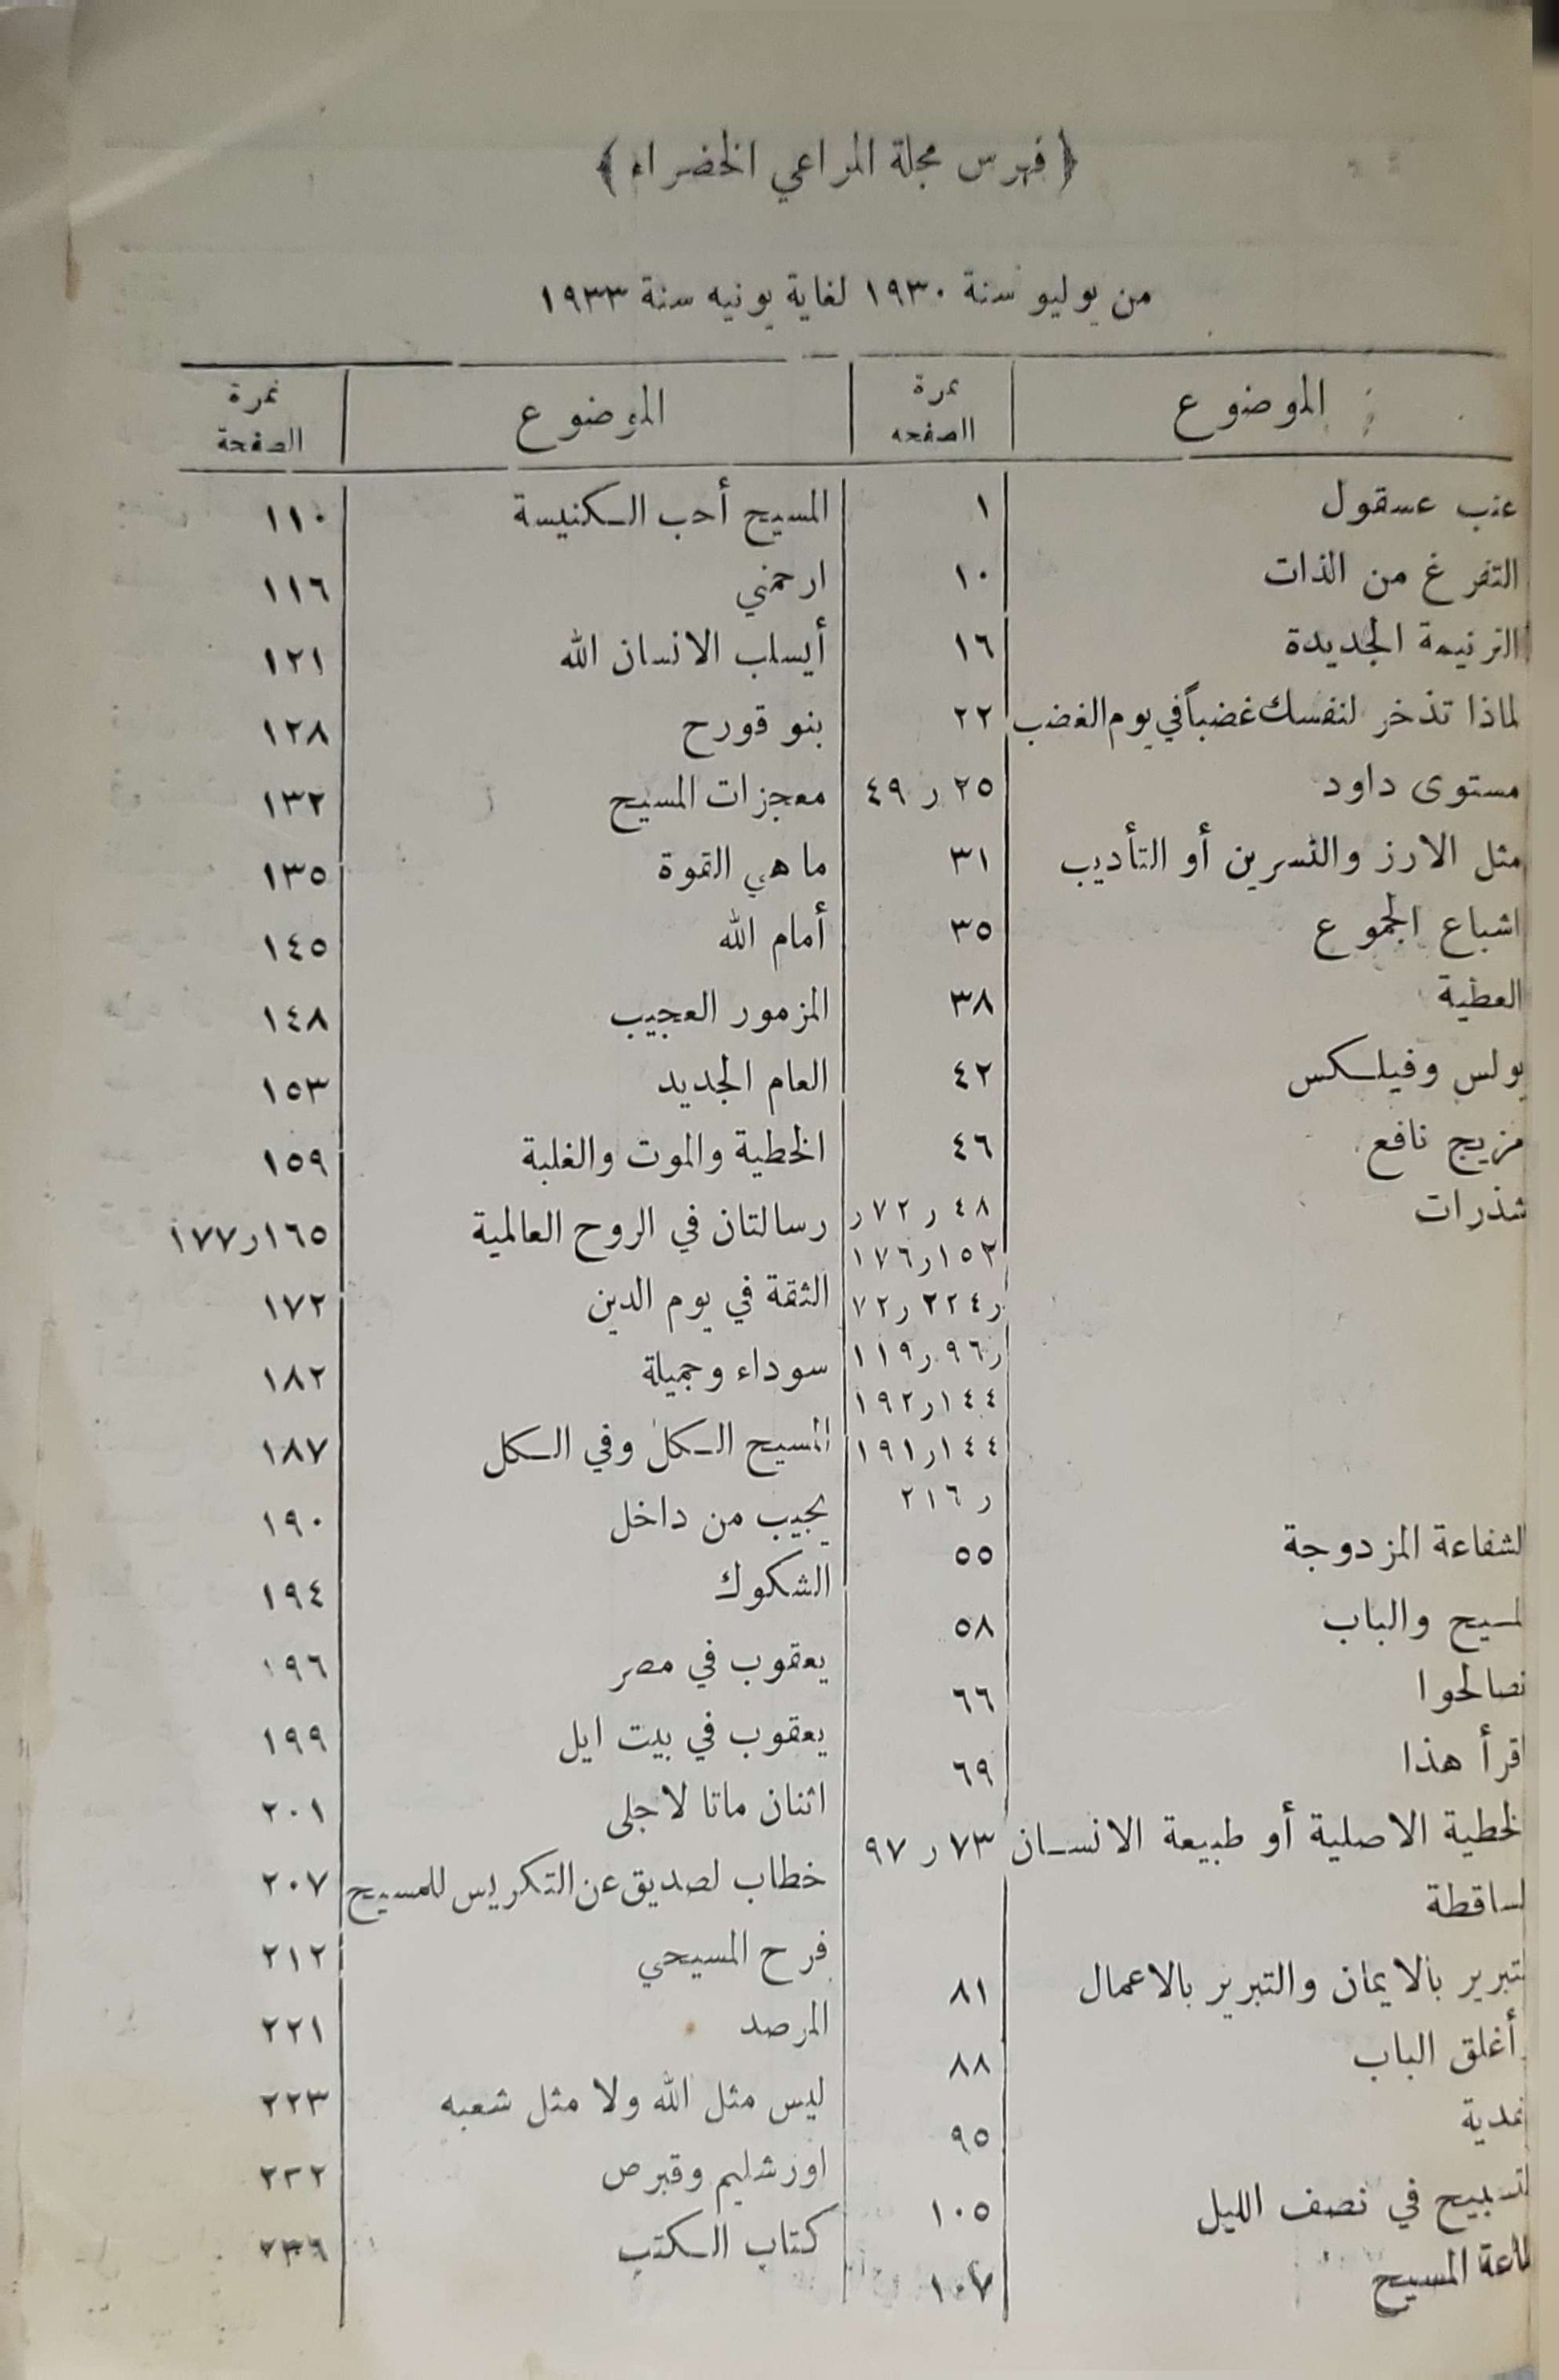 ﴿ فهرس مجلة المراعي الخضراء ﴾
من يوليو سنة ١٩٣٠ لغاية يونيه سنة ١٩٣٣
الموضوع نمرة الصفحه
عنب عسقول ١
التفرغ من الذات ١٠
الترنيمة الجديدة ١٦
لماذا تذخر لنفسك غضباً في يوم الغضب ٢٢
مستوى داود ٢٥ ر ٤٩
مثل الارز والنسرين أو التأديب ٣١
اشباع الجموع ٣٥
العطية ٣٨
بولس وفيلكس ٤٢
مزيج نافع ٤٦
شذرات ٤٨ ر ٧٢ ر
١٥٢ ر ١٧٦
ر ٢٢٤ ر ٧٢
ر ٩٦ ر ١١٩
١٤٤ ر ١٩٢
١٤٤ ر ١٩١
ر ٢١٦
لشفاعة المزدوجة ٥٥
لمسيح والباب ٥٨
تصالحوا ٦٦
اقرأ هذا ٦٩
لخطية الاصلية أو طبيعة الانسان ٧٣ ر ٩٧
لساقطة
لتبرير بالايمان والتبرير بالاعمال ٨١
أغلق الباب ٨٨
٩٥
لتسبيح في نصف الليل ١٠٥
المسيح ١٠٧
الموضوع نمرة الصفحة
المسيح أحب الكنيسة ١١٠
ارحمني ١١٦
أيسلب الانسان الله ١٢١
بنو قورح ١٢٨
معجزات المسيح ١٣٢
ما هي القوة ١٣٥
أمام الله ١٤٥
المزمور العجيب ١٤٨
العام الجديد ١٥٣
الخطية والموت والغلبة ١٥٩
رسالتان في الروح العالمية ١٦٥ ر ١٧٧
الثقة في يوم الدين ١٧٢
سوداء وجميلة ١٨٢
المسيح الكل وفي الكل ١٨٧
يجيب من داخل ١٩٠
الشكوك ١٩٤
يعقوب في مصر ١٩٦
يعقوب في بيت ايل ١٩٩
اثنان ماتا لاجلى ٢٠١
خطاب لصديق عن التكريس للمسيح ٢٠٧
فرح المسيحي ٢١٢
المرصد ٢٢١
ليس مثل الله ولا مثل شعبه ٢٢٣
اورشليم وقبرص ٢٣٢
كتاب الكتب ٢٣٦